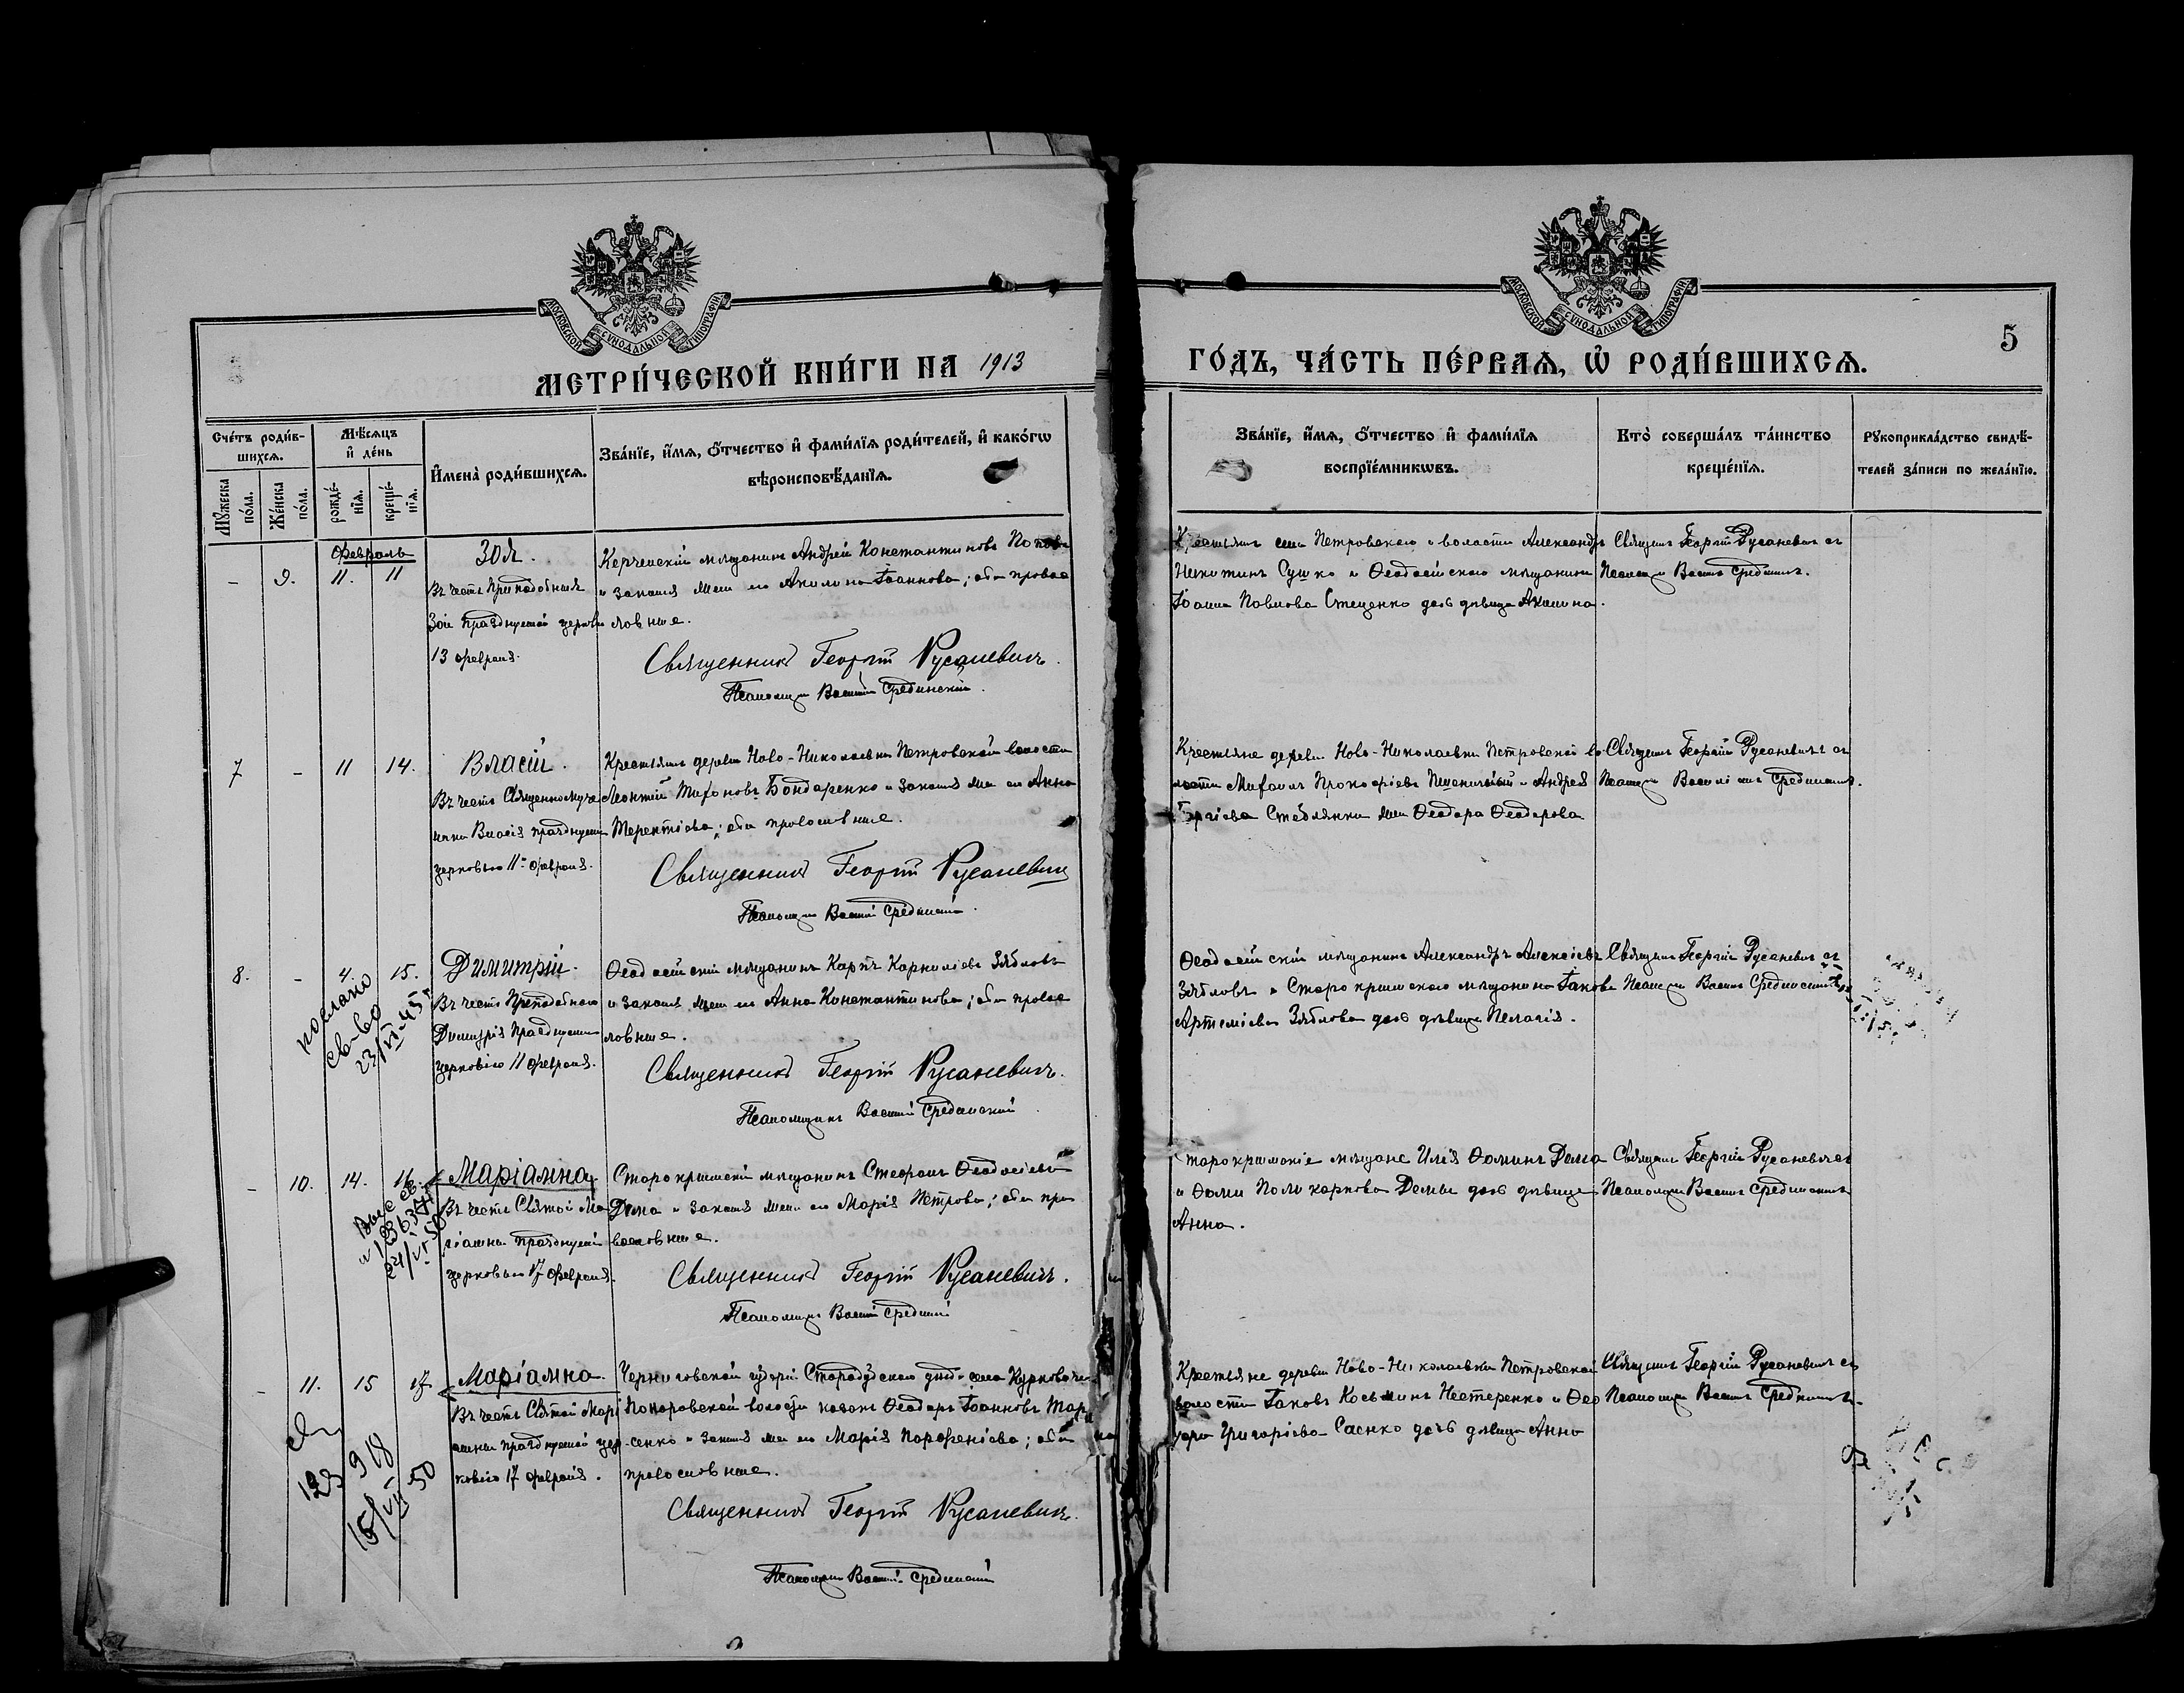 МОСКОВСКОЙ СУНОДАЛЬНОЙ ТИПОГРАФІИ
МОСКОВСКОЙ СУНОДАЛЬНОЙ ТИПОГРАФІИ
5
МЕТРИ́ЧЕСКОЙ КНИ́ГИ НА 1913
ГО́ДЪ, ЧА́СТЬ ПЕ́РВАѦ, Ѽ РОДИ́ВШИХСѦ.
Сче́тъ роди́в-
шихсѧ.
Мꙋ́жеска по́ла.
Же́нска по́ла.
Мѣ́сѧцъ
и҆ де́нь
рожде́-
нїѧ.
креще́-
нїѧ.
И҆мена̀ роди́вшихсѧ.
Зва́нїе, и҆́мѧ, ѻ҆́тчество и҆ фами́лїѧ роди́телей, и҆ како́гѡ
вѣроисповѣ́данїѧ.
Зва́нїе, и҆́мѧ, ѻ҆́тчество и҆ фами́лїѧ
воспрїе́мникѡвъ.
Кто̀ соверша́лъ та́инство
креще́нїѧ.
Рꙋкоприкла́дство свидѣ́-
телей за́писи по жела́нїю.
Февраль
- 9. 11. 11
Зоя.
Въ честь Преподобныя
Зои празднуемой церковью
13 февраля.
Керченскій мѣщанинъ Андрей Константиновъ Попов
и законная жена его Акилина Іоаннова; оба правос
лавные.
Священникъ Георгій Русаневичъ.
Псаломщикъ Василій Срединскій.
Крестьянинъ села Петровскаго и волости Александръ
Никитинъ Сушко и Ѳеодосійскаго мѣщанина
Іоанна Павлова Стеценко дочь дѣвица Акилина.
Священникъ Георгій Русаневичъ съ
Псаломщ Васил Срединскимъ.
7 - 11 14.
Власій.
Въ честь Священномуче
ника Власія празднуемаго
церковью 11го февраля.
Крестьянинъ деревни Ново-Николаевки Петровской волости
Леонтій Тихоновъ Бондаренко и законная жена его Анна
Терентіева; оба православные.
Священникъ Георгій Русаневичъ
Псаломщикъ Василій Срединскій.
Крестьяне деревни Ново-Николаевки Петровской во
лости Михаилъ Прокофіевъ Пшеничный и Андрея
Стеблянки жена Ѳеодора Ѳеодорова
Священникъ Георгій Русаневичъ съ
Псаломщик Василіемъ Срединскимъ.
8. - 4. 15.
Димитрій.
послано
св-во
23/VI-45г
Въ честь Преподобнаго
Димитрія празднуемаго
церковію 11 февраля.
Ѳеодосійскій мѣщанинъ Карпъ Корниліевъ Зябловъ
и законная жена его Анна Константинова; оба правос
лавные.
Священникъ Георгій Русаневичъ.
Псаломщикъ Василій Срединскій
Ѳеодосійскій мѣщанинъ Александръ Алексіевъ
Зябловъ и Старокрымскаго мѣщанина Іакова
Артеміева Зяблова дочь дѣвица Пелагія.
Священникъ Георгій Русаневичъ съ
Псаломщ Васил Срединскимъ
- 10. 14. 16.
Маріамна
Въ честь Святой Ма
ріамны празднуемой
церковью 17 февраля.
Старокрымскій мѣщанинъ Стефанъ Ѳеодосіевъ
Дема и законная жена его Марія Петрова; оба пра
вославные.
Священникъ Георгій Русаневичъ.
Псаломщикъ Василій Срединскій
Старокрымскіе мѣщане Илія Ѳоминъ Дема
и Ѳомы Поликарпова Демы дочь дѣвица
Анна.
Священникъ Георгій Русаневичъ съ
Псаломщик Васил Срединскимъ
- 11. 15 17
Маріамна.
св
123 918
15/VII 50
Въ честь Святой Марі
амны празднуемой цер
ковію 17 февраля.
Черниговской губерніи Стародубскаго уѣзда села Курковичи
волости казакъ Ѳеодоръ Іоанновъ Тара
сенко и законная жена его Марія Парфеніева; оба
православные.
Священникъ Георгій Русаневичъ.
Псаломщикъ Василій Срединскій
Крестьяне деревни Ново-Николаевки Петровской
волости Іаковъ Косьминъ Нестеренко и Ѳео
дора Григоріева Саенко дочь дѣвица Анна
Священникъ Георгій Русаневичъ съ
Псаломщик Васил Срединскимъ.